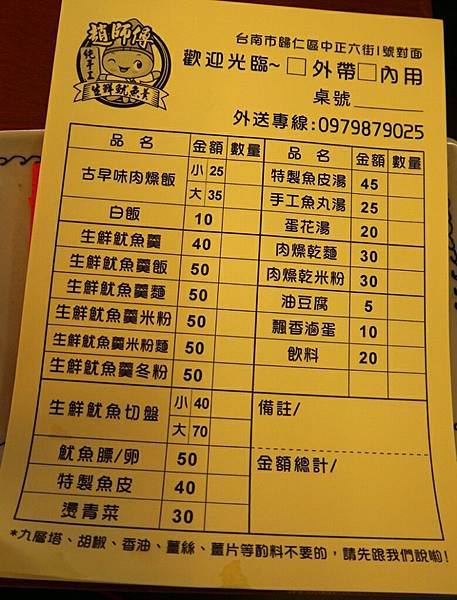 趙師傅
純手工
生鮮魷魚羹
台南市歸仁區中正六街1號對面
歡迎光臨~ □外帶□內用
桌號
外送專線:0979879025
品 名 金額 數量
古早味肉燥飯 小 25
大 35
白飯 10
生鮮魷魚羹 40
生鮮魷魚羹飯 50
生鮮魷魚羹麵 50
生鮮魷魚羹米粉 50
生鮮魷魚羹米粉麵 50
生鮮魷魚羹冬粉 50
生鮮魷魚切盤 小 40
大 70
魷魚膘/卵 50
特製魚皮 40
燙青菜 30
品 名 金額 數量
特製魚皮湯 45
手工魚丸湯 25
蛋花湯 20
肉燥乾麵 30
肉燥乾米粉 30
油豆腐 5
飄香滷蛋 10
飲料 20
備註/
金額總計/
*九層塔、胡椒、香油、薑絲、薑片等酌料不要的，請先跟我們說啦!